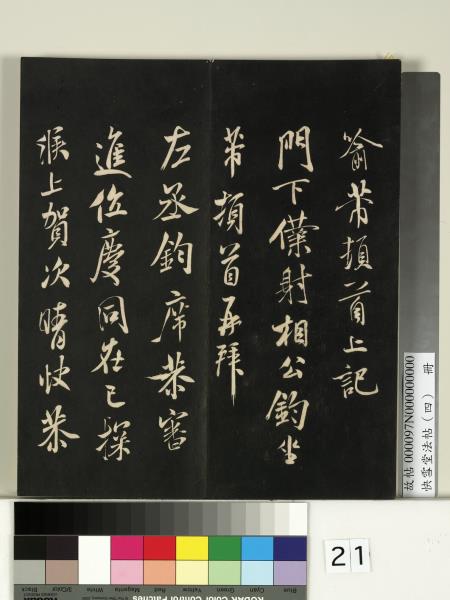 芾頓首上記
門下僕射相公鈞坐
芾頓首再拜
左丞鈞席恭審
進位慶同在已深
候上賀次晴快恭
故帖 000097N000000000
快雪堂法帖（四） 冊
21
Blue
Cyan
Green
Yellow
Red
Magenta
White
3/Color
Black
KODAK Color Control Patches